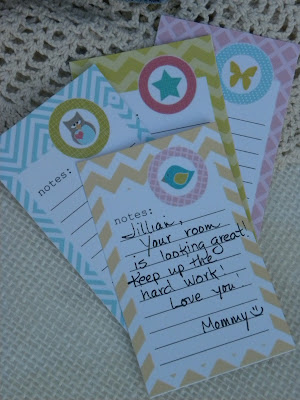 notes:
notes:
Jillian,
Your room
is looking great!
Keep up the
hard work!
Love you!
Mommy